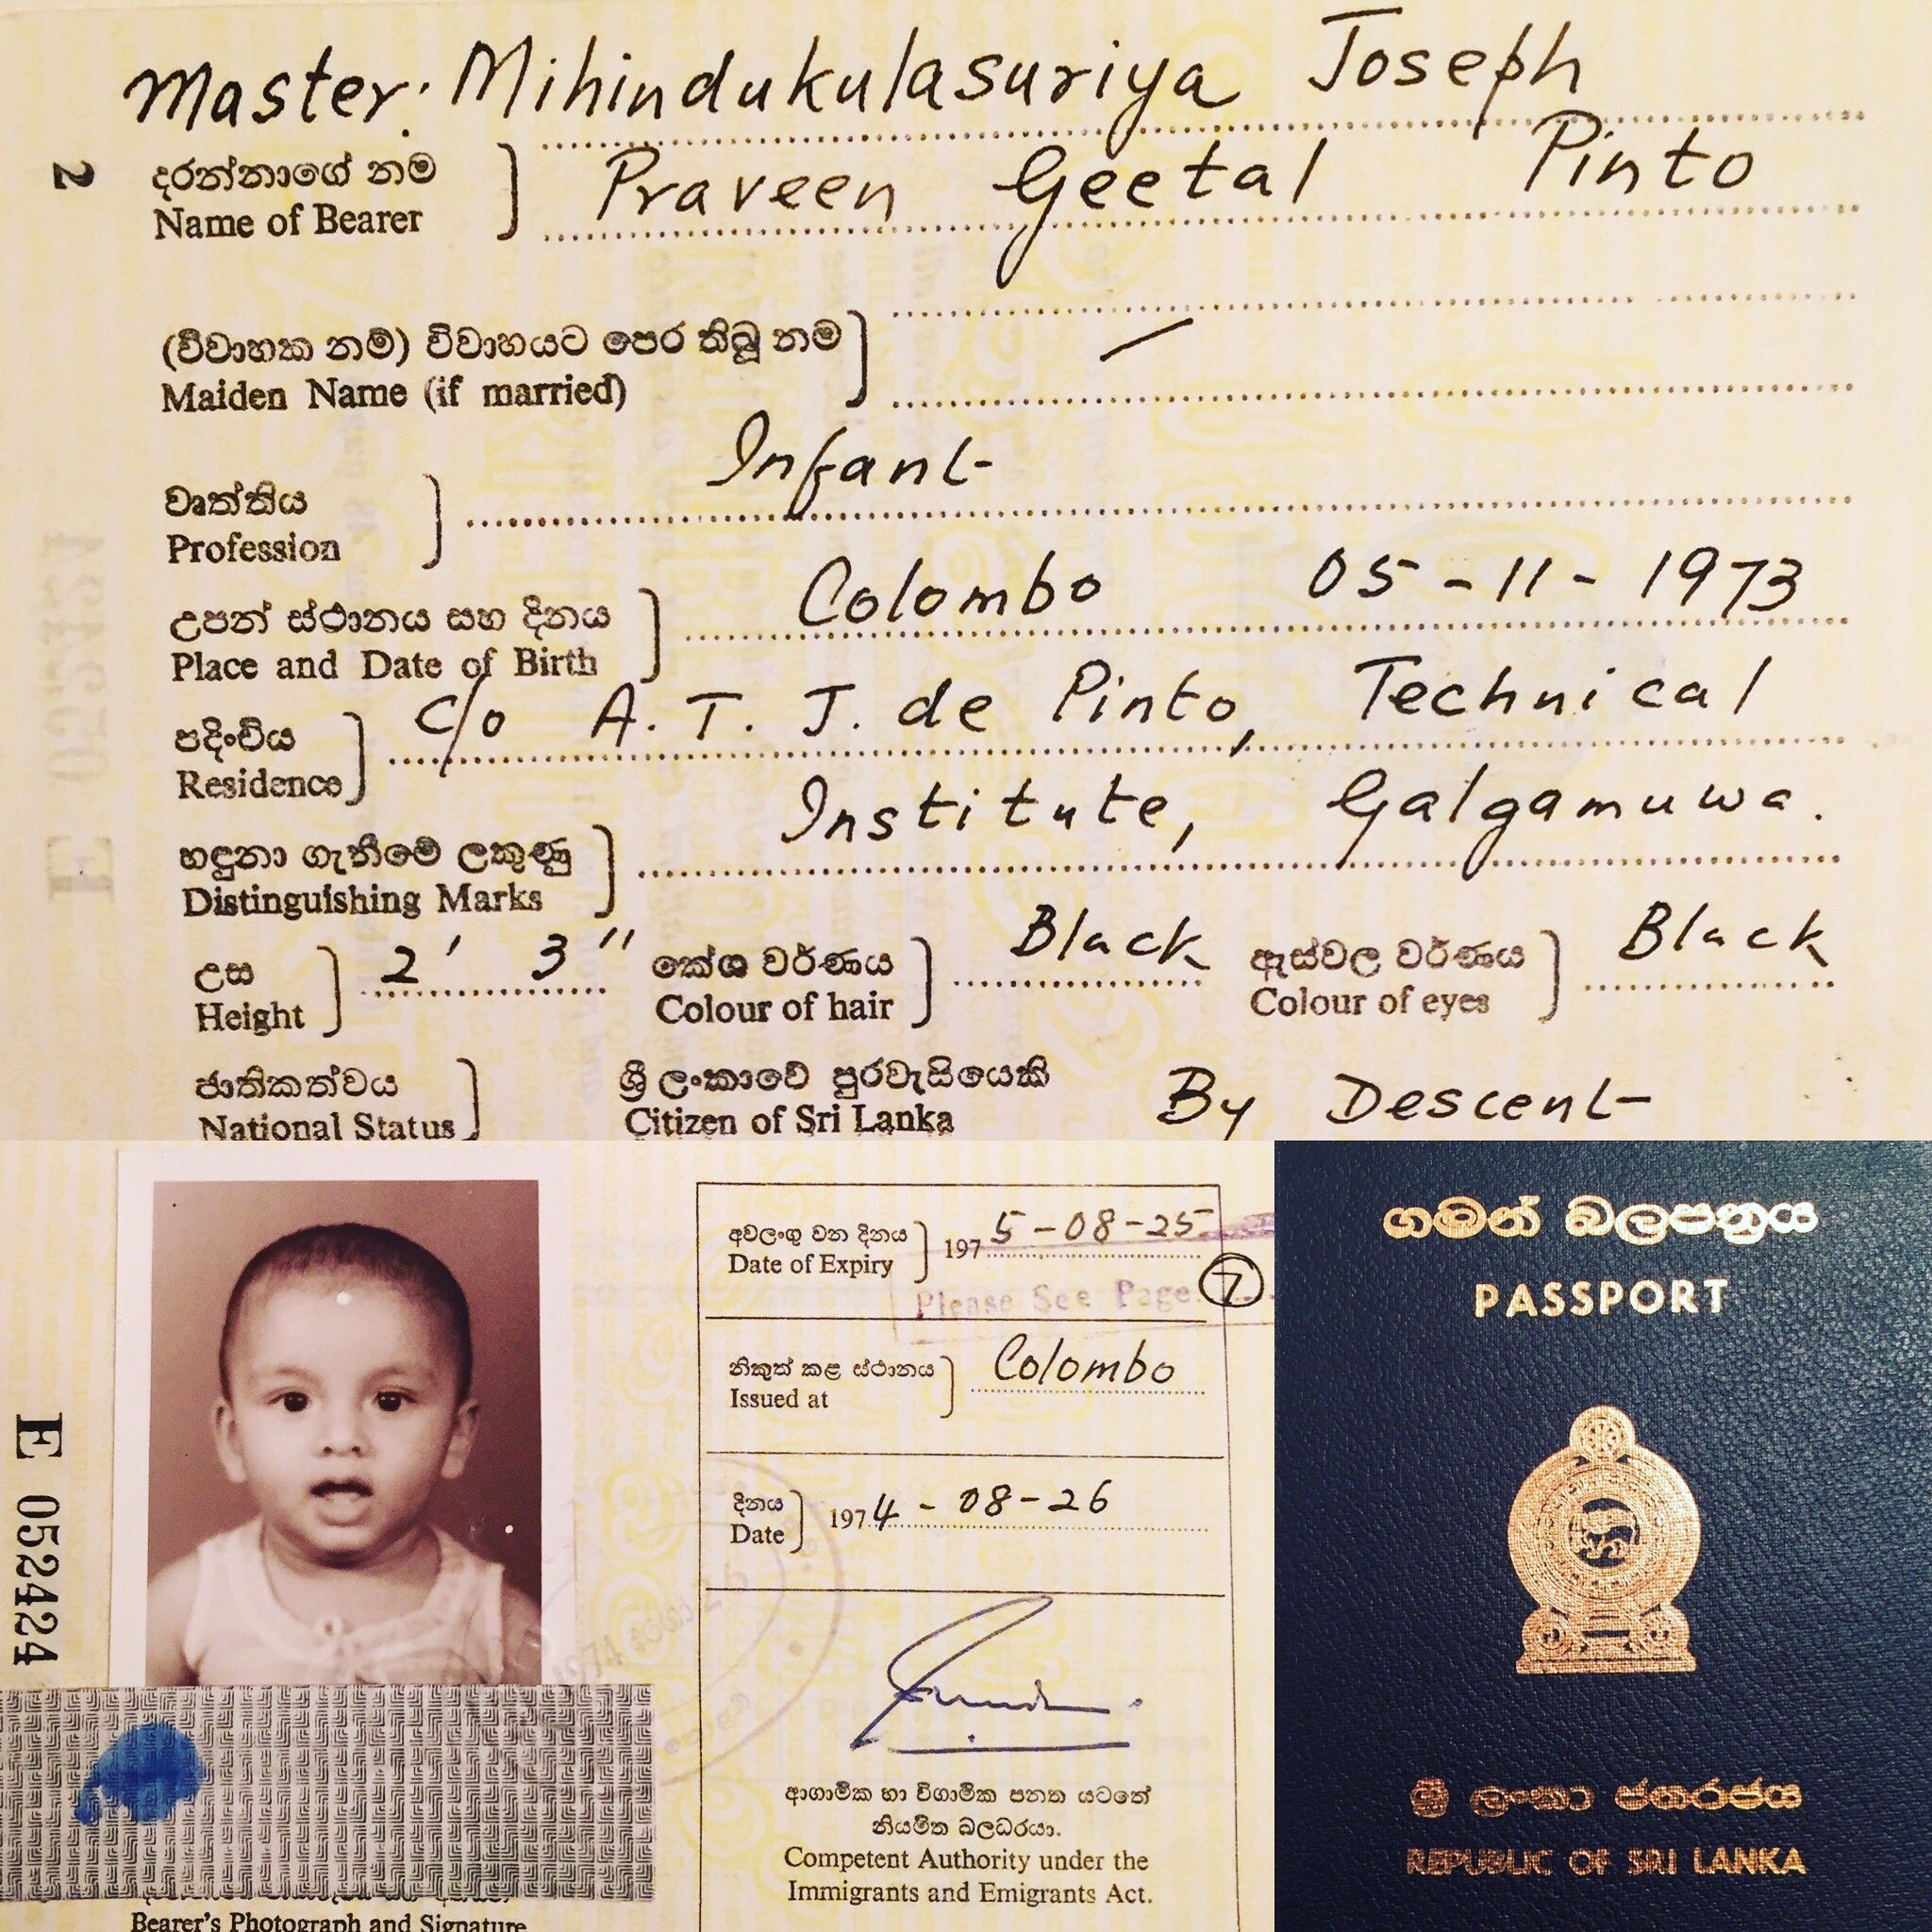 Master. Mihindukulasuriya Joseph
2
දරන්නාගේ නම
Name of Bearer
Praveen Geetal Pinto
(විවාහක නම්) විවාහයට පෙර තිබූ නම
Maiden Name (if married)
—
වෘත්තිය
Profession
Infant
උපන් ස්ථානය සහ දිනය
Place and Date of Birth
Colombo 05-11-1973
පදිංචිය
Residence
C/o A. T. J. de Pinto, Technical
Institute, Galgamuwa.
හඳුනා ගැනීමේ ලකුණු
Distinguishing Marks
උස
Height
2' 3"
කේශ වර්ණය
Colour of hair
Black
ඇස්වල වර්ණය
Colour of eyes
Black
ජාතිකත්වය
National Status
ශ්‍රී ලංකාවේ පුරවැසියෙකි
Citizen of Sri Lanka
By Descent
E 052424
Bearer's Photograph and Signature
අවලංගු වන දිනය
Date of Expiry
1975-08-25
Please See Page 7
නිකුත් කළ ස්ථානය
Issued at
Colombo
දිනය
Date
1974-08-26
ආගාමික හා විගාමික පනත යටතේ
නියමිත බලධරයා.
Competent Authority under the
Immigrants and Emigrants Act.
ගමන් බලපත්‍රය
PASSPORT
ශ්‍රී ලංකා ජනරජය
REPUBLIC OF SRI LANKA